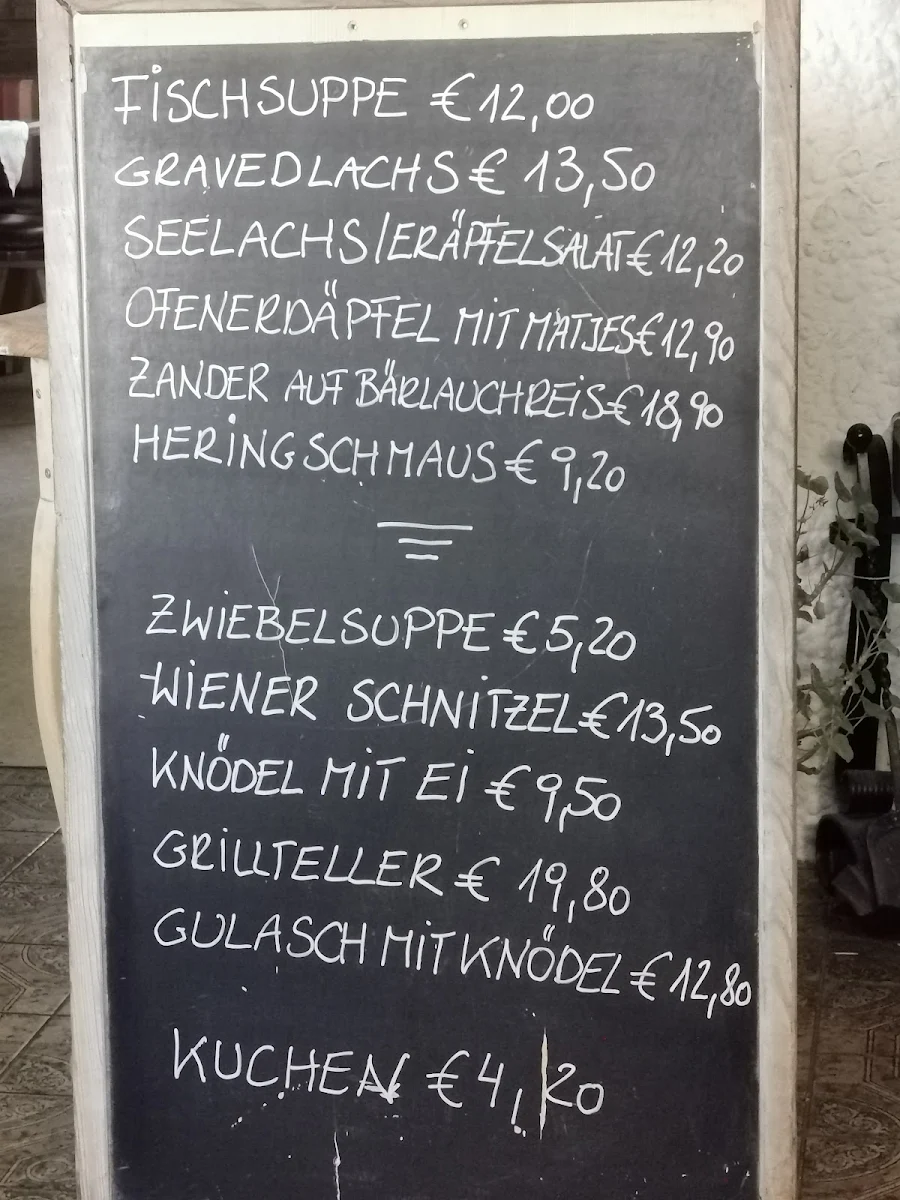 FISCHSUPPE € 12,00
GRAVEDLACHS € 13,50
SEELACHS/ERÄPFELSALAT € 12,20
OFENERDÄPFEL MIT MATJES € 12,90
ZANDER AUF BÄRLAUCHREIS € 18,90
HERINGSCHMAUS € 9,20
ZWIEBELSUPPE € 5,20
WIENER SCHNITZEL € 13,50
KNÖDEL MIT EI € 9,50
GRILLTELLER € 19,80
GULASCH MIT KNÖDEL € 12,80
KUCHEN € 4,20